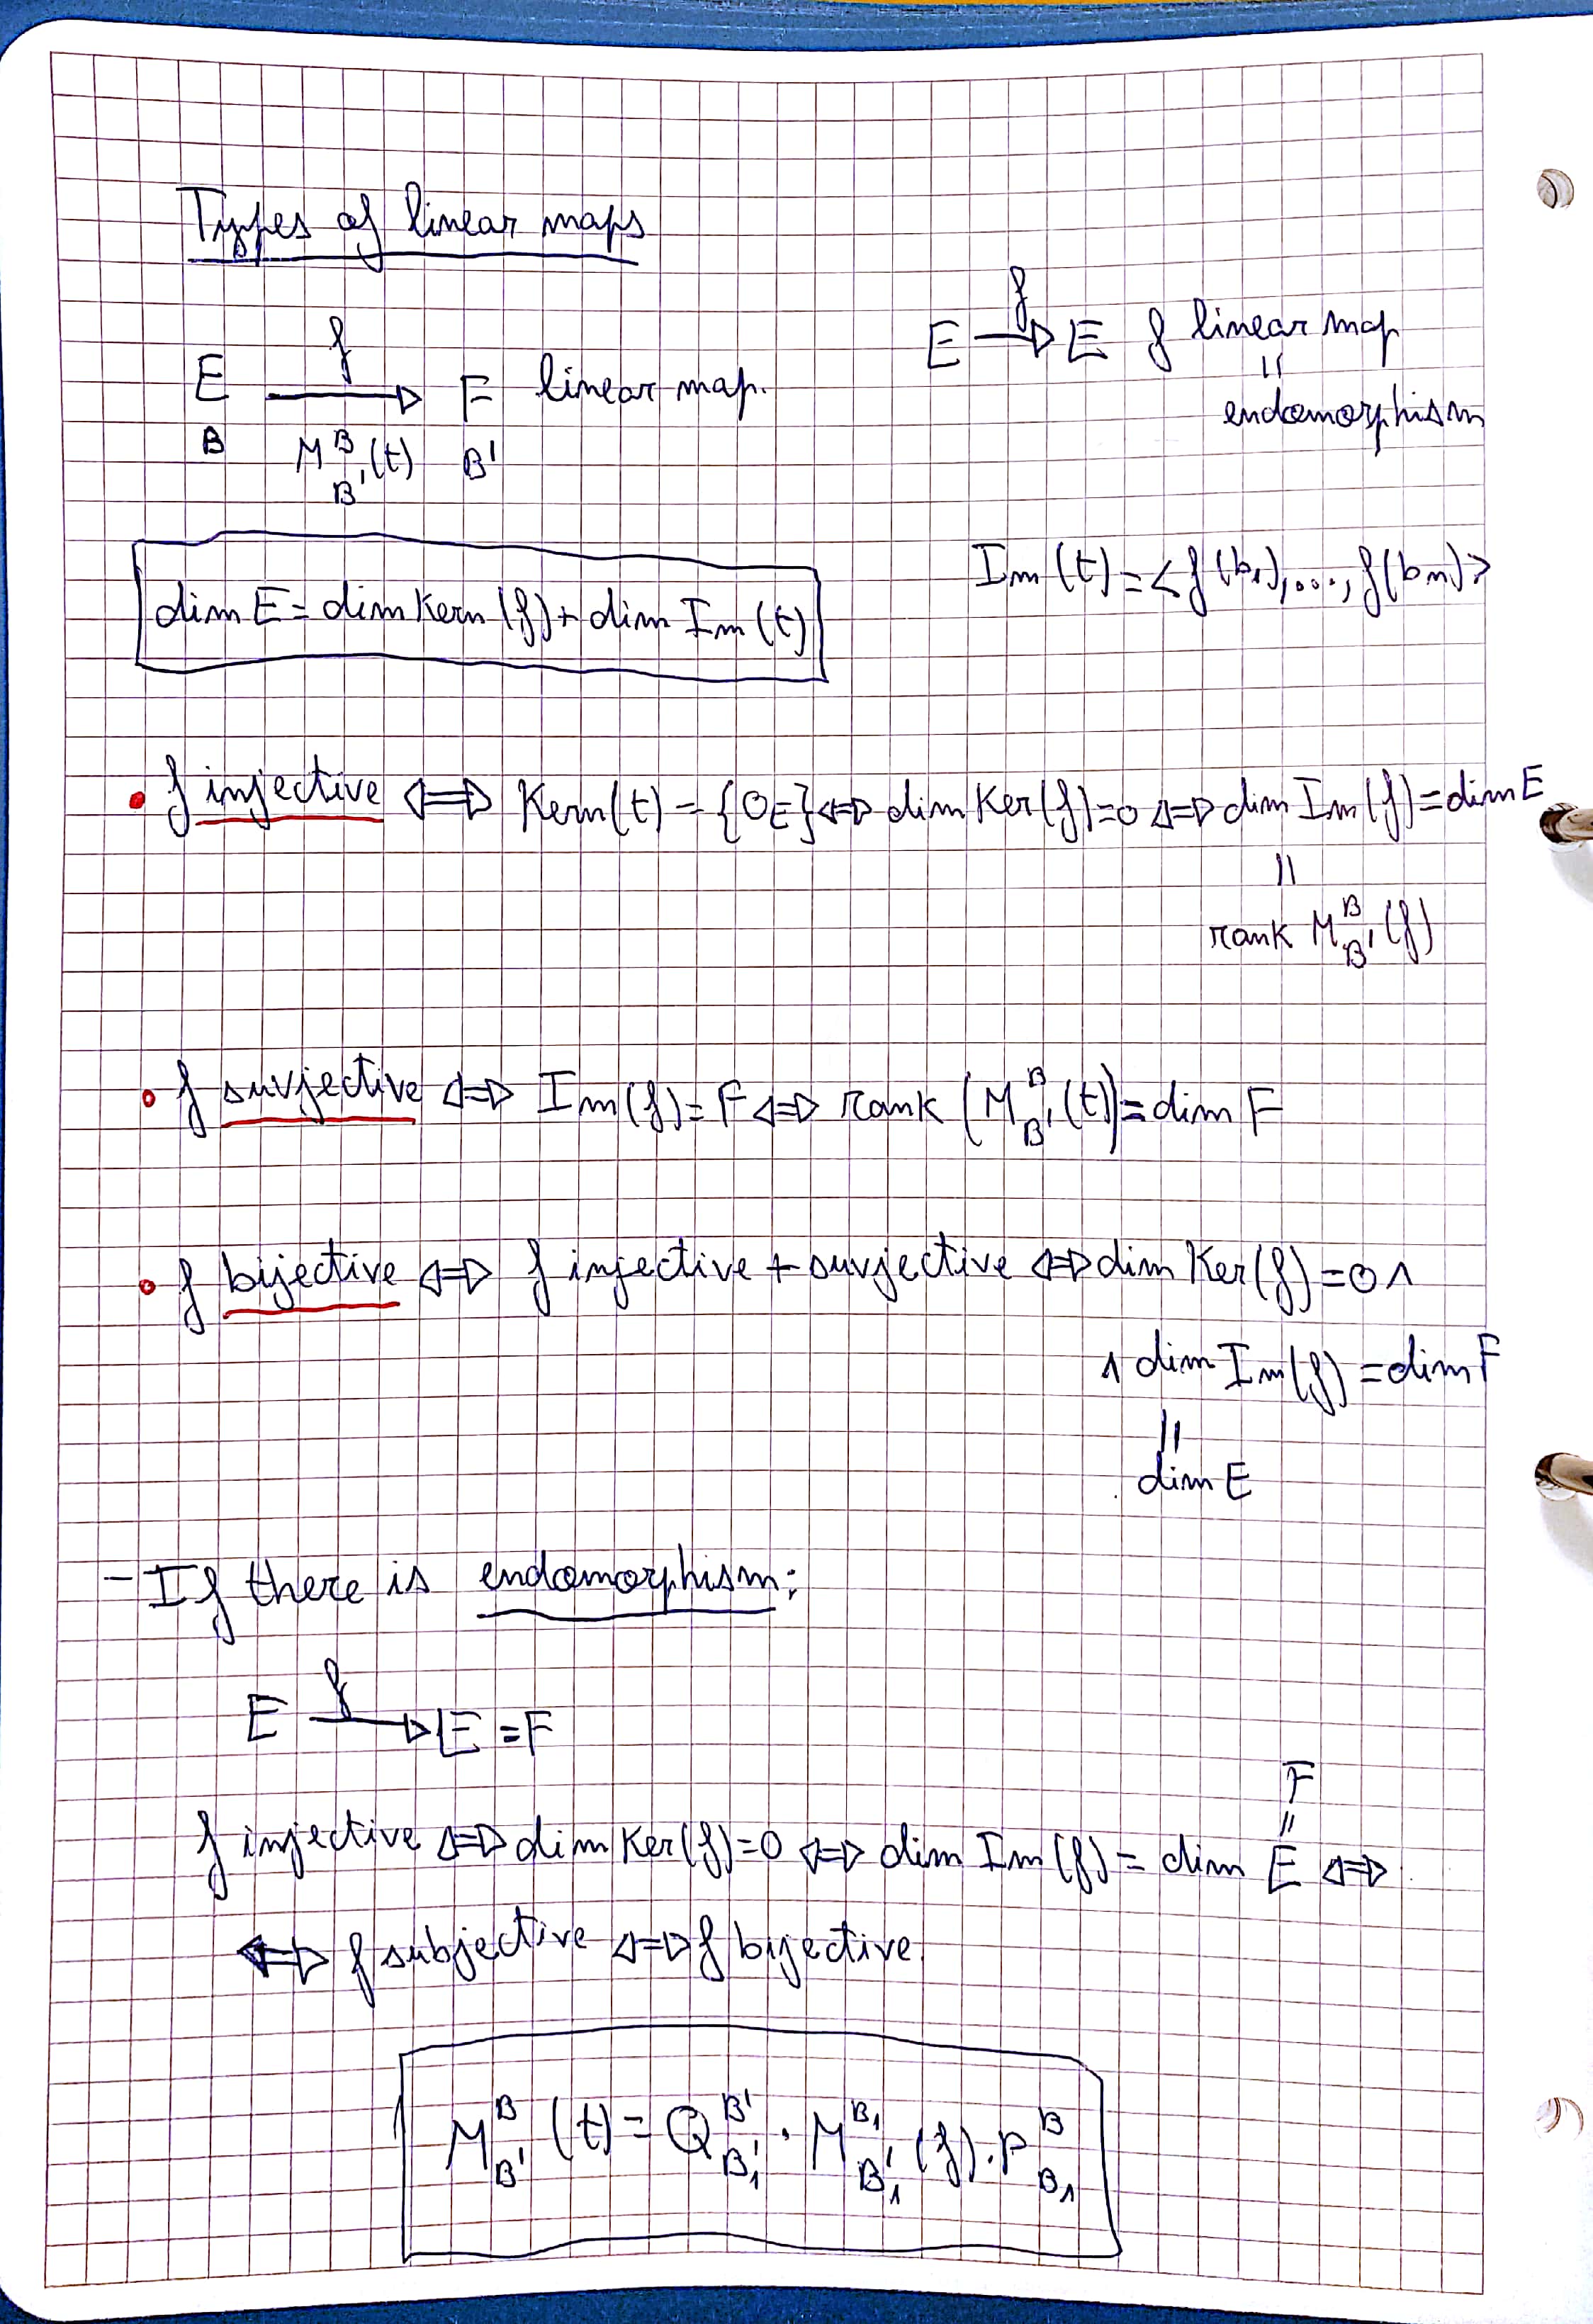 Types of linear maps
E →f F linear map.
B M^B_B'(t) B'
E →f E f linear map
=
endomorphism
dim E = dim Kern (f) + dim Im (t)
Im (t) = <f(b₁),...., f(bn)>
• f injective <=> Kern(t) = {0_E} <=> dim Ker(f)=0 <=> dim Im(f)=dim E
=
rank M^B_B' (f)
• f suvjective <=> Im(f)=F <=> rank (M^B_B'(t))=dim F
• f bijective <=> f injective + suvjective <=> dim Ker(f)=0 ∧
∧ dim Im(f) = dim F
=
dim E
- If there is endomorphism:
E →f E = F
F
=
f injective <=> dim Ker(f)=0 <=> dim Im(f) = dim E <=>
<=> f subjective <=> f bijective.
M^B_B' (t) = Q^B'_B'₁ · M^B₁_B'₁ (f) · P^B_B₁